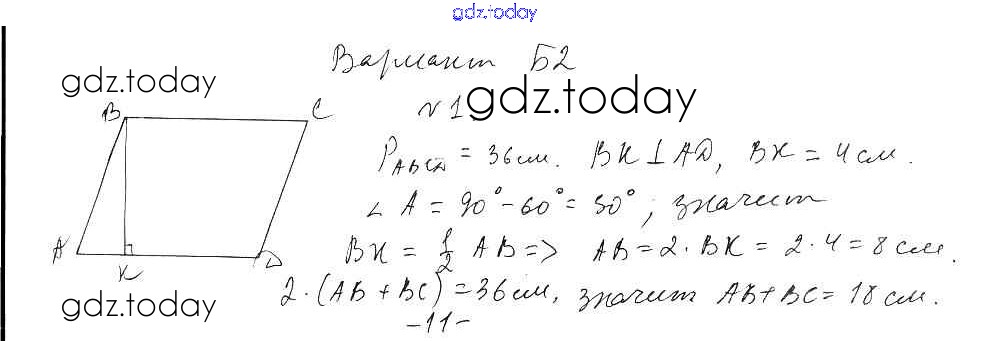 gdz.today
Вариант Б2
gdz.today
N 1.
gdz.today
P_ABCD = 36 см. BK ⊥ AD, BK = 4 см.
∠ A = 90° - 60° = 30°, значит
BK = 1/2 AB => AB = 2 · BK = 2 · 4 = 8 см.
2 · (AB + BC) = 36 см, значит AB + BC = 18 см.
- 11 -
B
C
A
K
D
gdz.today